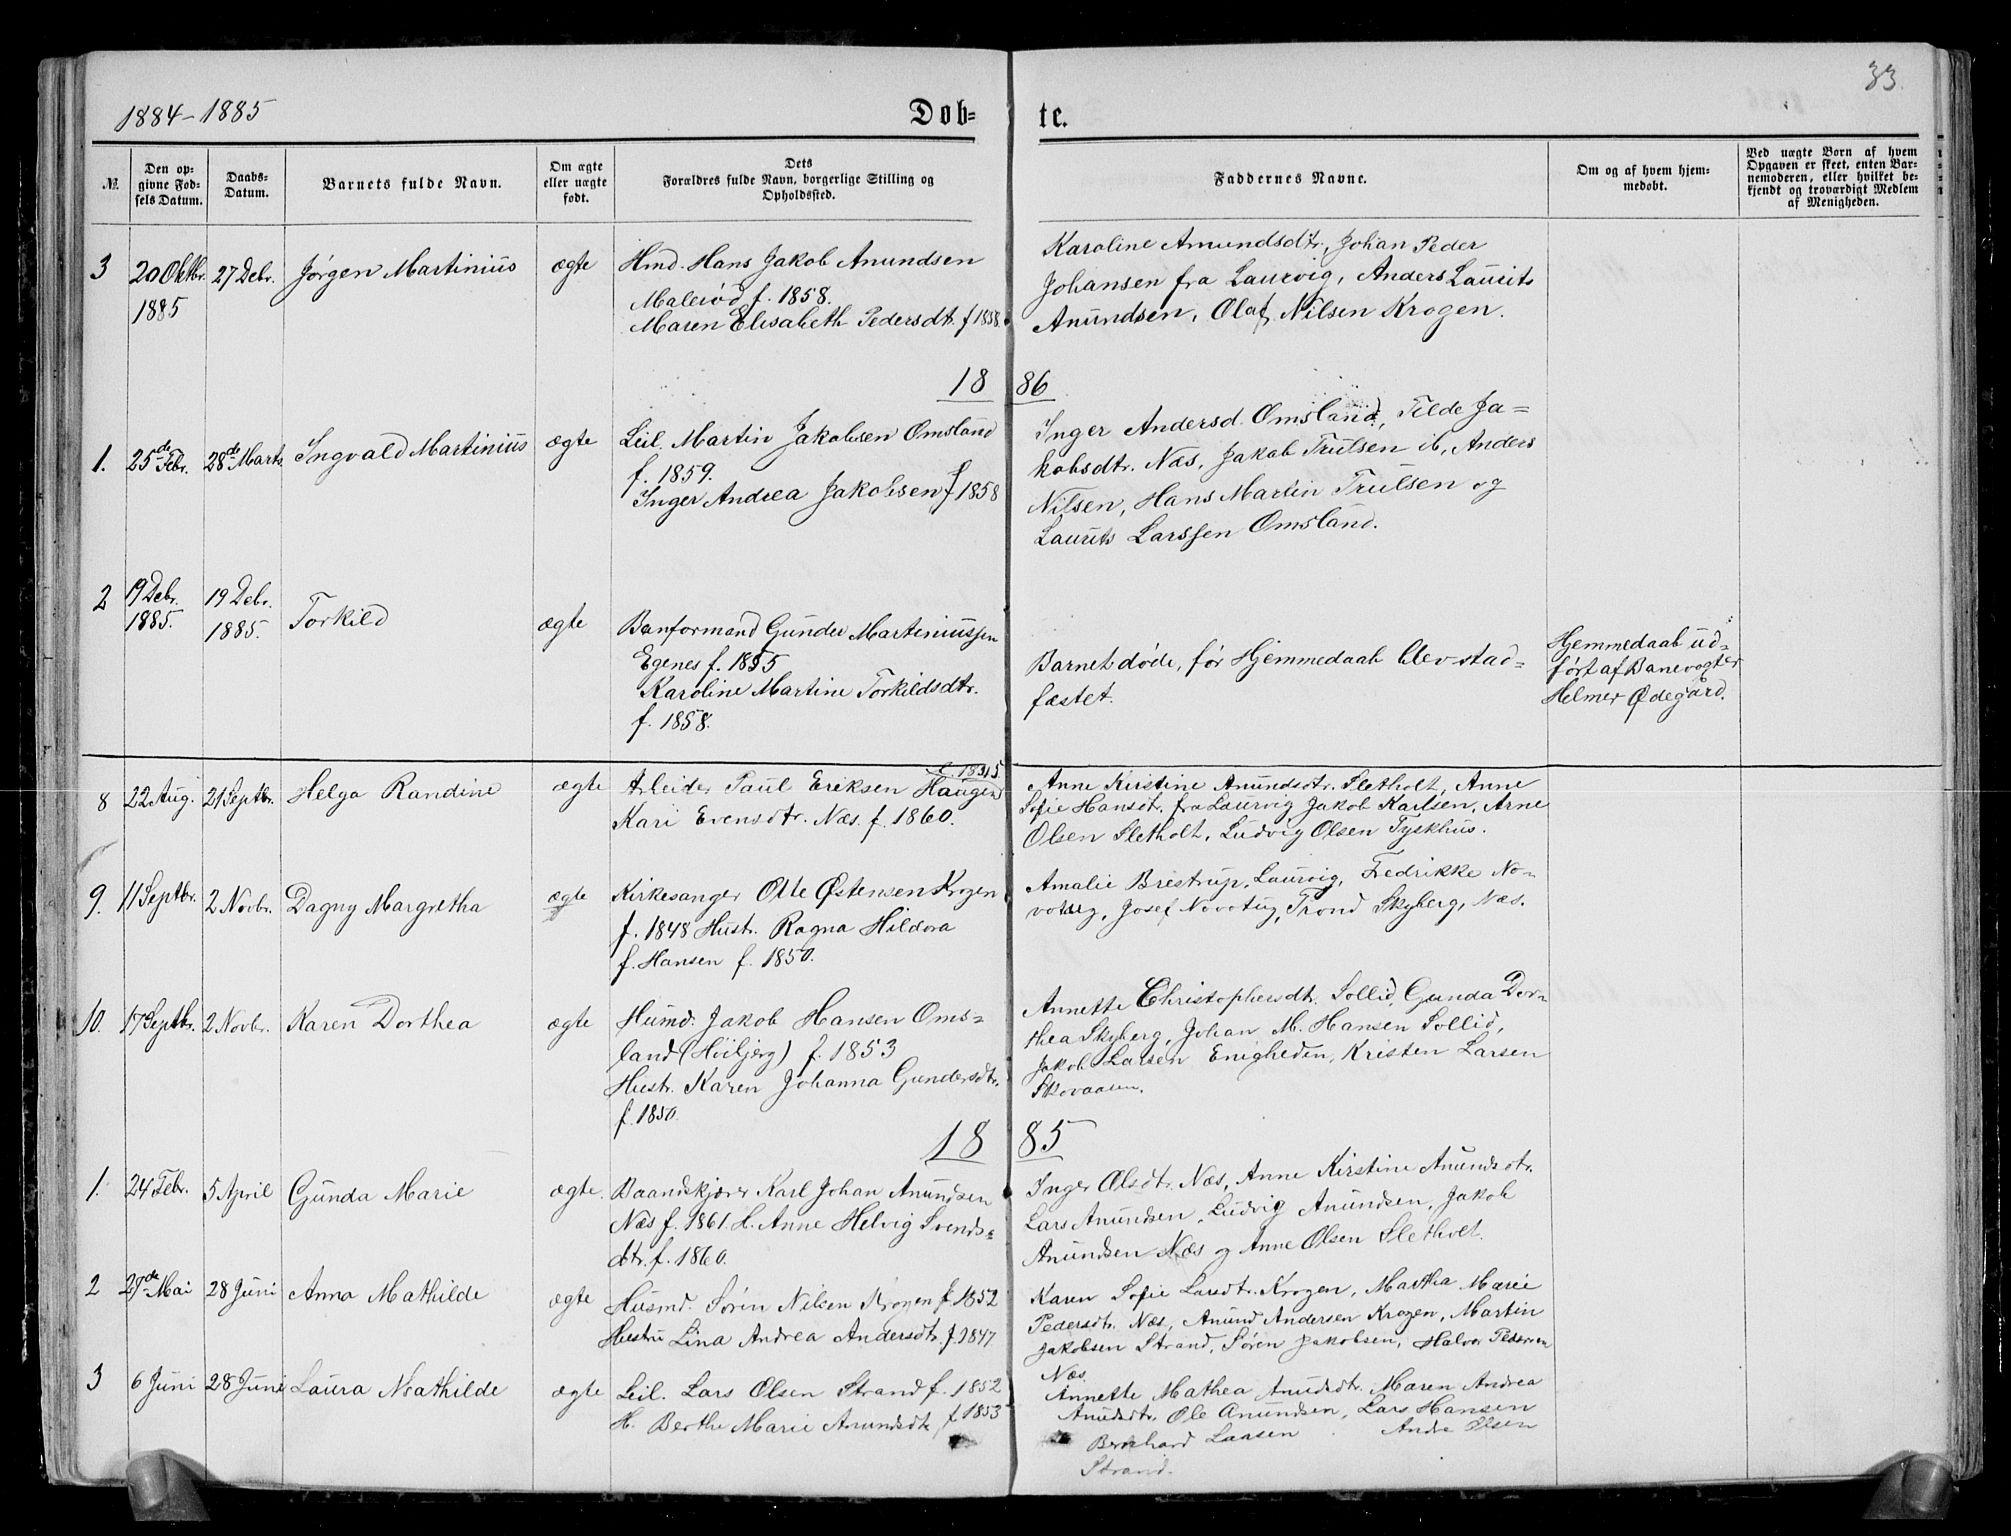 33.
1884-1885
Döb-
te.
№.
Den op-
givne Föd-
sels Datum.
Daabs-
Datum.
Barnets fulde Navn.
Om ægte
eller uægte
født.
Dets
Forældres fulde Navn, borgerlige Stilling og
Opholdssted.
Faddernes Navne.
Om og af hvem hjem-
medøbt.
Ved uægte Børn af hvem
Opgaven er skeet, enten Bar-
nemoderen, eller hvilket be-
kjendt og troværdigt Medlem
af Menigheden.
3
20 Oktbr.
1885
27 Debr.
Jørgen Martinius
ægte
Hmd. Hans Jakob Anundsen
Malerød f. 1858.
Maren Elisabeth Pedersdtr. f 1858.
Karoline Amundsdtr, Johan Peder
Johansen fra Laurvig, Anders Laurits
Anundsen, Olaf Nilsen Krogen.
18
86
1.
25de Febr.
28de Marts
Ingvald Martinius
ægte
Leil. Martin Jakobsen Omsland
f. 1859.
Inger Andrea Jakobsen f 1858
Inger Andersd. Omsland, Tilde Ja=
kobsdtr. Næs, Jakob Trulsen ib, Anders
Nilsen, Hans Martin Trulsen og
Laurits Larssen Omsland.
2
19 Debr.
1885.
19 Debr.
1885.
Torkild
ægte
Banformand Gunder Martiniussen
Egenes f. 1855
Karoline Martine Torkildsdtr.
f. 1858.
Barnet døde, før Hjemmedaab blev stad=
fæstet.
Hjemmedaab ud=
ført af Banevogter
Helmer Ødegård.
8
22 Aug.
21 Septbr.
Helga Randine
ægte
Arbeider Paul Eriksen Haugen
Kari Evensdtr. Næs. f. 1860.
Anne Kirstine Anundsdtr. Sletholt, Anne
Sofie Hansdtr. fra Laurvig Jakob Karlsen, Arne
Olsen Sletholt, Ludvig Olsen Tyskhus.
9.
11 Septbr.
2 Novbr.
Dagny Margretha
ægte
Kirkesanger Otte Østensen Krogen
f. 1848 Hustr. Ragna Hildora
f. Hansen f. 1850.
Amalie Brestrup, Laurvig, Fredrikke No-
votny, Josef Novotny, Trond Skyberg, Næs.
10.
17 Septbr.
2 Novbr.
Karen Dorthea
ægte
Husmd. Jakob Hansen Oms=
land (Höibjerg) f. 1853
Hustr. Karen Johanna Gundersdtr.
f. 1850.
Annette Christophersdtr. Sollid, Gunda Dor=
thea Skyberg, Johan M. Hansen Sollid,
Jakob Larsen Enigheden, Kristen Larsen
Skovaasen.
18
85
1.
24 Febr.
5 April
Gunda Marie
ægte.
Baandskjærer Karl Johan Anundsen
Næs f. 1861. H. Anne Helvig Svends=
dtr. f. 1860.
Inger Olsdtr. Næs, Anne Kirstine Anundsdtr.
Lars Anundsen, Ludvig Anundsen, Jakob
Anundsen Næs og Anne Olsen Slethold.
2
27de Mai
28 Juni
Anna Mathilde
ægte
Husmd. Sørin Nilsen Krogen f. 1852
Hustru Lina Andrea Andersdtr. f. 1847
Karen Sofie Larsdtr. Krogen, Martha Marie
Pedersdtr. Næs, Anund Andersen Krogen, Martin
Jakobsen Strand, Søren Jakobsen, Halvor Pedersen
Næs
3
6 Juni
28 Juni
Laura Mathilde
ægte
Leil. Lars Olsen Strand f. 1852
H. Berthe Marie Anundsdtr f. 1853
Annette Mathea Anudsdtr. Maren Andrea
Anudsdtr. Ole Anundsen, Lars Hansen
Bernhard Laasen Andr. Olsen
Strand.